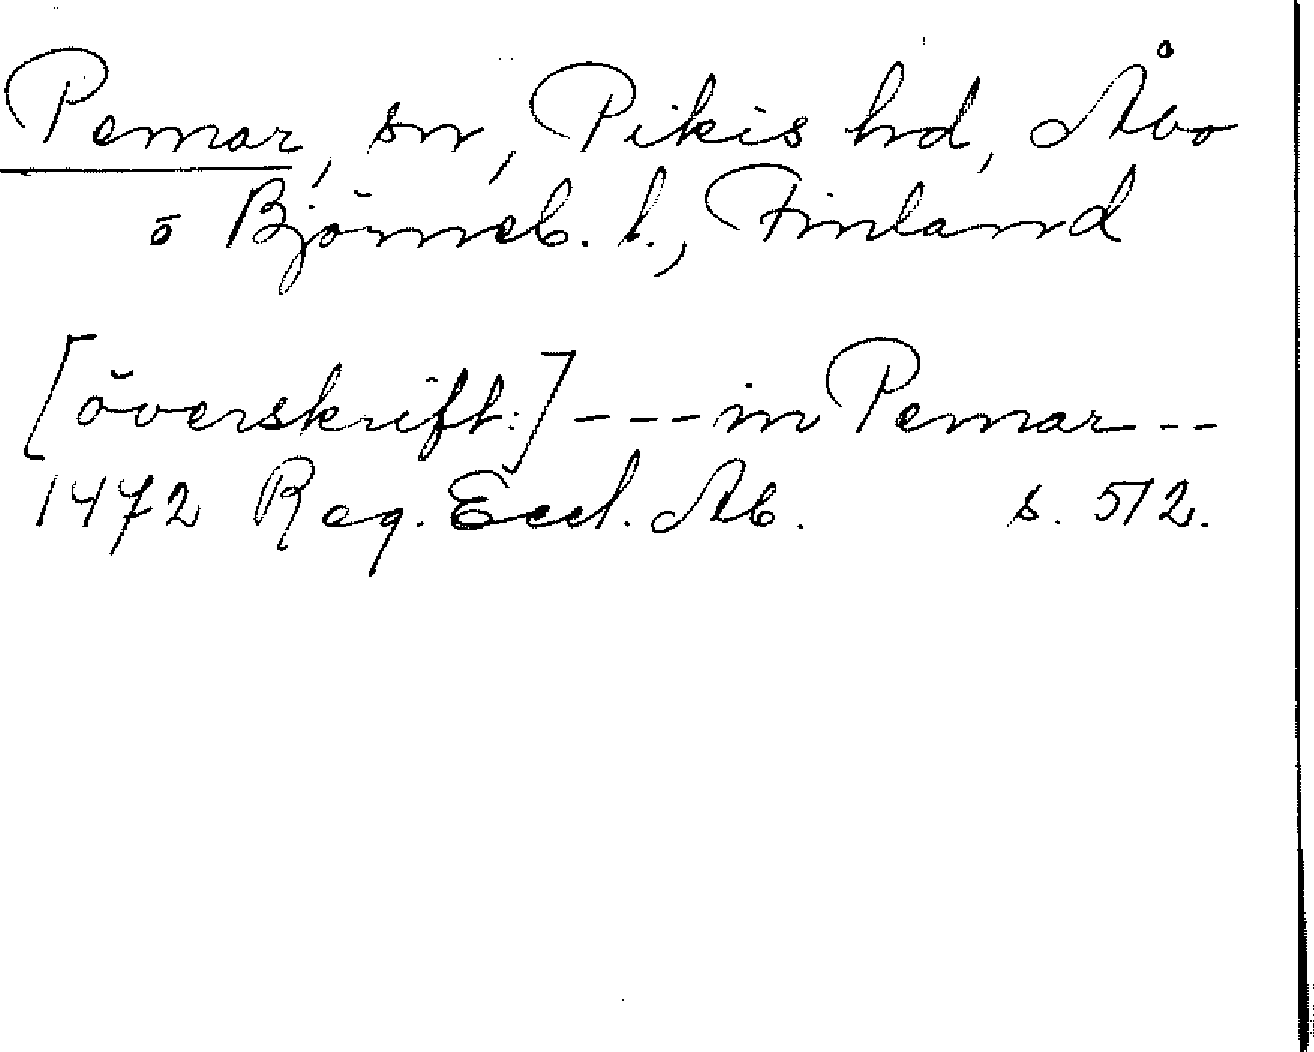 Pemar, sn, Pikis hd, Åbo
o Björneb. l., Finland
[överskrift:] --- in Pemar --
1472 Reg. Eccl. Ab. s. 512.